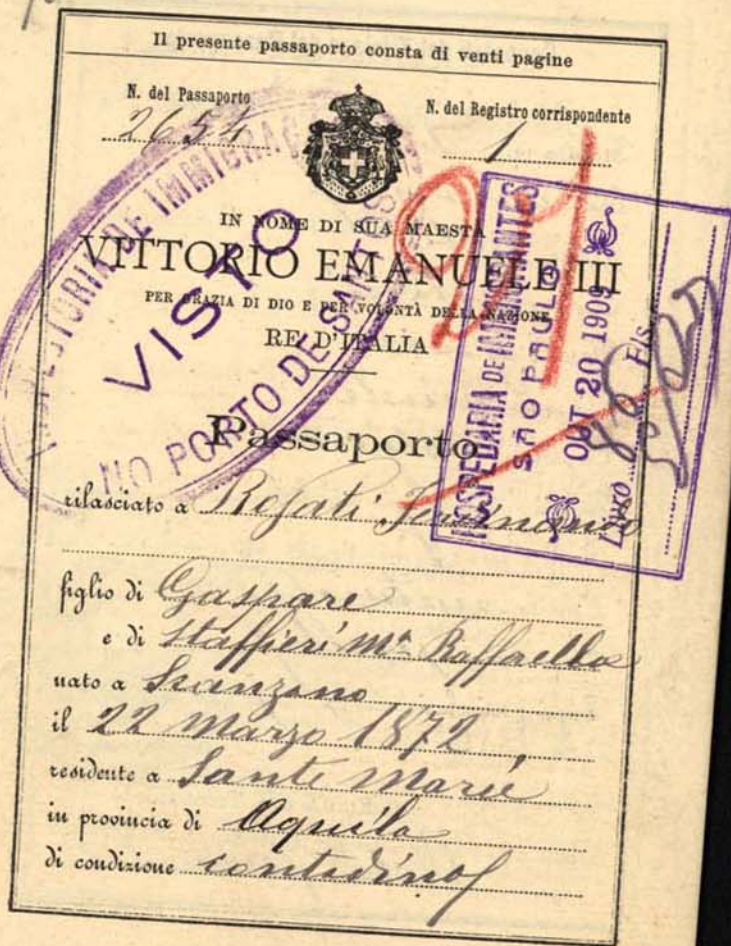 Il presente passaporto consta di venti pagine
N. del Passaporto
2654
N. del Registro corrispondente
1
IN NOME DI SUA MAESTÀ
VITTORIO EMANUELE III
PER GRAZIA DI DIO E PER VOLONTÀ DELLA NAZIONE
RE D'ITALIA
Passaporto
rilasciato a Rosati
figlio di Gaspare
e di Staffieri Mª Raffaella
nato a Scanzano
il 22 Marzo 1872
residente a Sante Marie
in provincia di Aquila
di condizione contadino
INSPECTORIA DE IMMIGRAÇ
VISTO
NO PORTO DE SANTOS
HOSPEDARIA DE IMMIGRANTES
SÃO PAULO
OUT 20 1909
Livro Fls.